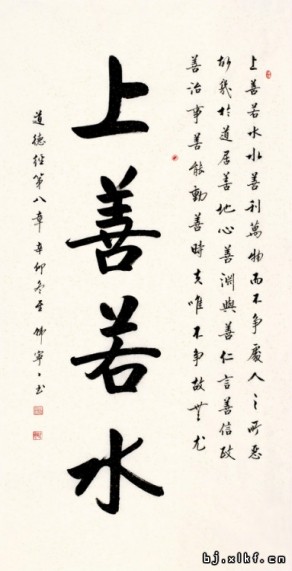 上善若水水善利萬物而不争處人之所惡
故幾於道居善地心善淵與善仁言善信政
善治事善能動善時夫唯不争故無尤
上善若水
道德經第八章辛卯冬 寧書
bj.xlkf.cn